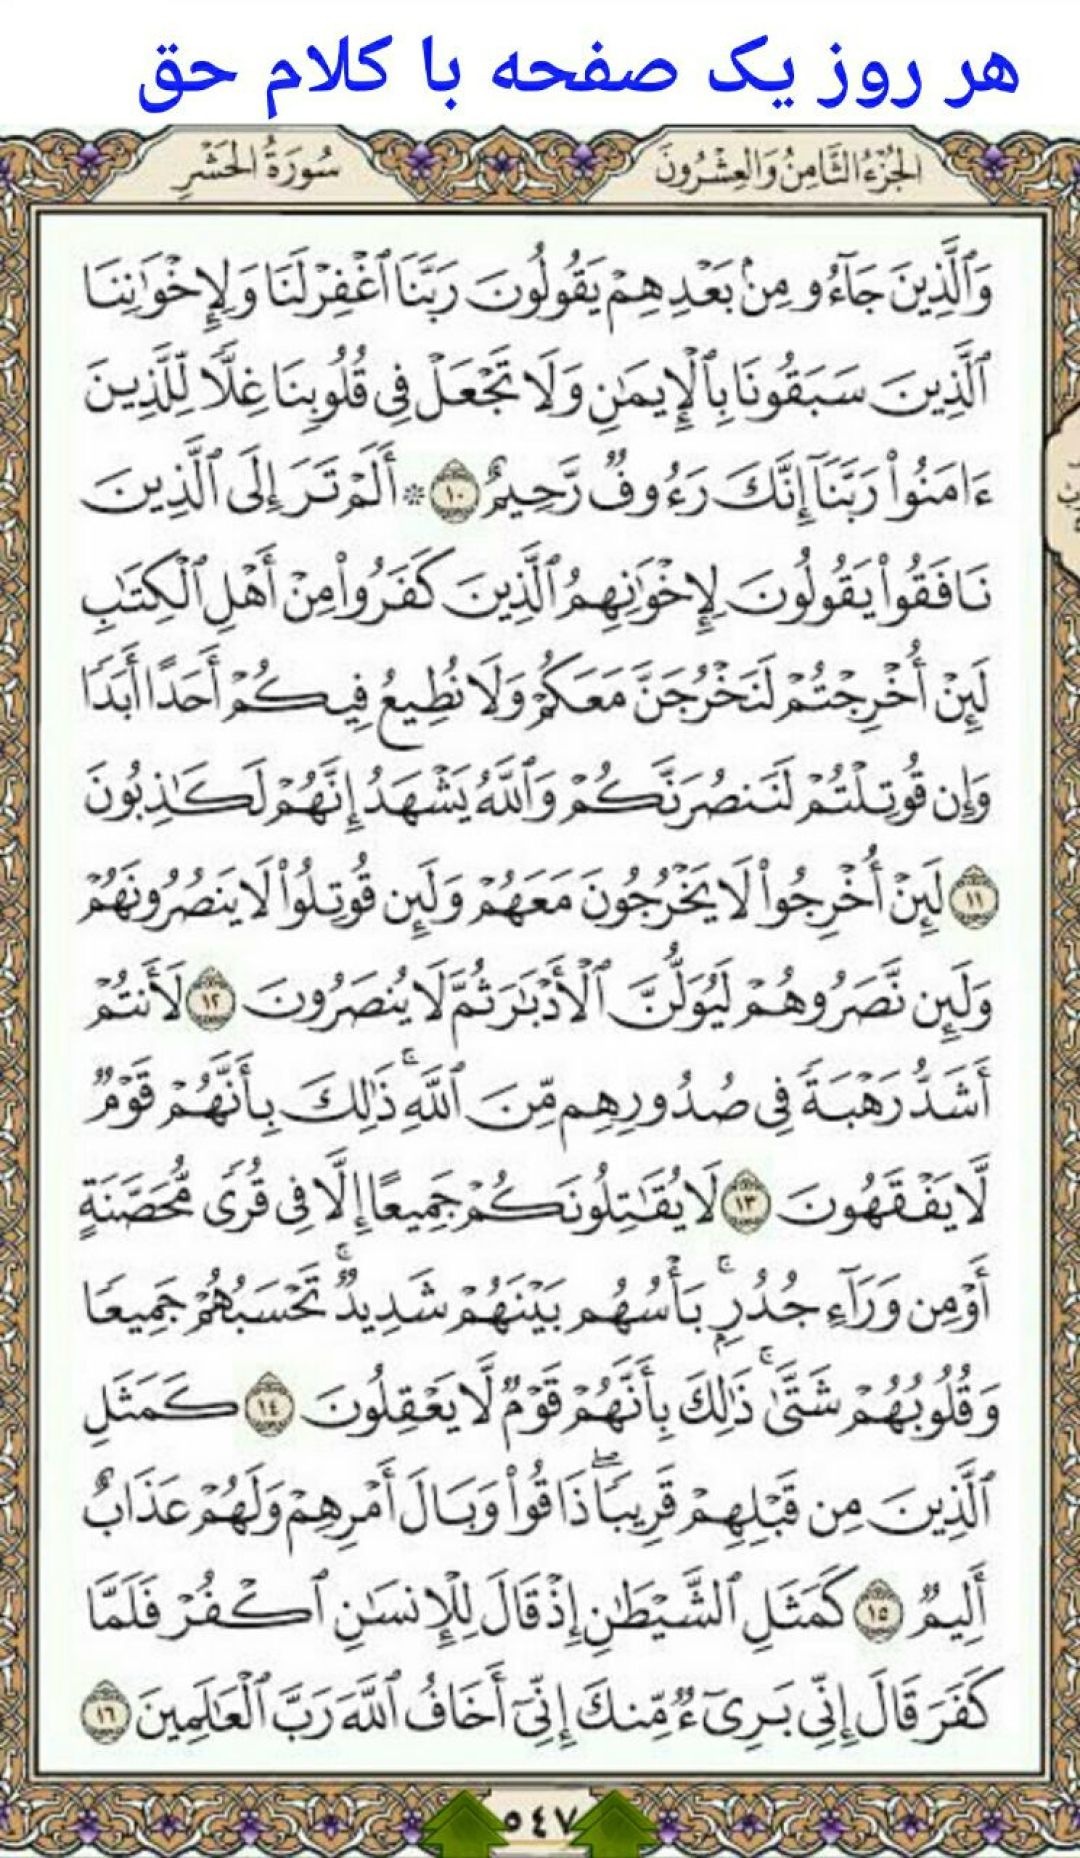 هر روز یک صفحه با کلام حق
الجُزْءُ الثَّامِنُ وَالعِشْرُونَ
سُورَةُ الحَشْرِ
وَٱلَّذِينَ جَآءُو مِنۢ بَعْدِهِمْ يَقُولُونَ رَبَّنَا ٱغْفِرْ لَنَا وَلِإِخْوَٰنِنَا
ٱلَّذِينَ سَبَقُونَا بِٱلْإِيمَٰنِ وَلَا تَجْعَلْ فِى قُلُوبِنَا غِلًّا لِّلَّذِينَ
ءَامَنُوا۟ رَبَّنَآ إِنَّكَ رَءُوفٌ رَّحِيمٌ ١٠ ۞ أَلَمْ تَرَ إِلَى ٱلَّذِينَ
نَافَقُوا۟ يَقُولُونَ لِإِخْوَٰنِهِمُ ٱلَّذِينَ كَفَرُوا۟ مِنْ أَهْلِ ٱلْكِتَٰبِ
لَئِنْ أُخْرِجْتُمْ لَنَخْرُجَنَّ مَعَكُمْ وَلَا نُطِيعُ فِيكُمْ أَحَدًا أَبَدًا
وَإِن قُوتِلْتُمْ لَنَنصُرَنَّكُمْ وَٱللَّهُ يَشْهَدُ إِنَّهُمْ لَكَٰذِبُونَ
١١ لَئِنْ أُخْرِجُوا۟ لَا يَخْرُجُونَ مَعَهُمْ وَلَئِن قُوتِلُوا۟ لَا يَنصُرُونَهُمْ
وَلَئِن نَّصَرُوهُمْ لَيُوَلُّنَّ ٱلْأَدْبَٰرَ ثُمَّ لَا يُنصَرُونَ ١٢ لَأَنتُمْ
أَشَدُّ رَهْبَةً فِى صُدُورِهِم مِّنَ ٱللَّهِ ۚ ذَٰلِكَ بِأَنَّهُمْ قَوْمٌ
لَّا يَفْقَهُونَ ١٣ لَا يُقَٰتِلُونَكُمْ جَمِيعًا إِلَّا فِى قُرًى مُّحَصَّنَةٍ
أَوْ مِن وَرَآءِ جُدُرٍۭ ۚ بَأْسُهُم بَيْنَهُمْ شَدِيدٌ ۚ تَحْسَبُهُمْ جَمِيعًا
وَقُلُوبُهُمْ شَتَّىٰ ۚ ذَٰلِكَ بِأَنَّهُمْ قَوْمٌ لَّا يَعْقِلُونَ ١٤ كَمَثَلِ
ٱلَّذِينَ مِن قَبْلِهِمْ قَرِيبًا ۖ ذَاقُوا۟ وَبَالَ أَمْرِهِمْ وَلَهُمْ عَذَابٌ
أَلِيمٌ ١٥ كَمَثَلِ ٱلشَّيْطَٰنِ إِذْ قَالَ لِلْإِنسَٰنِ ٱكْفُرْ فَلَمَّا
كَفَرَ قَالَ إِنِّى بَرِىٓءٌ مِّنكَ إِنِّىٓ أَخَافُ ٱللَّهَ رَبَّ ٱلْعَٰلَمِينَ ١٦
٥٤٧